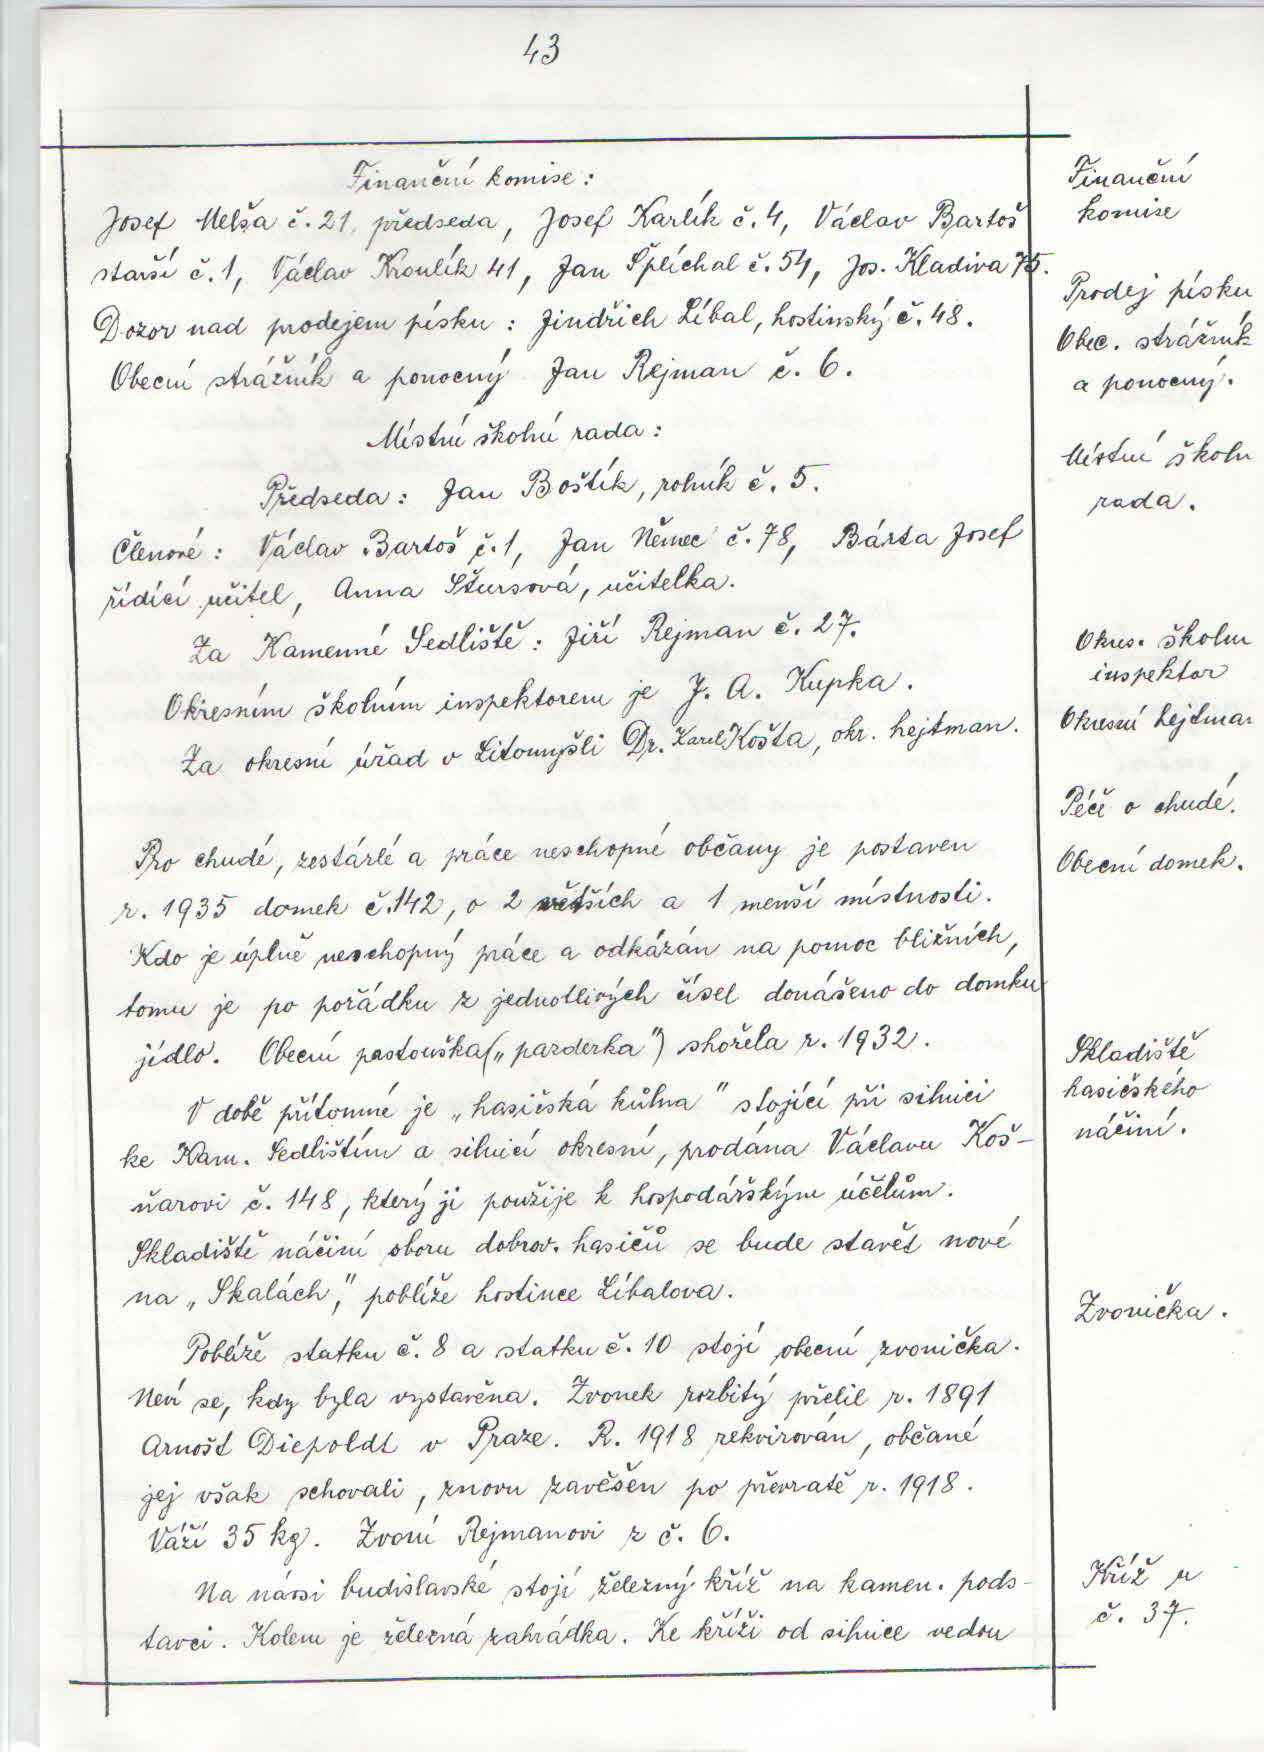 43
Finanční komise:
Josef Melša č. 21, předseda, Josef Karlík č. 4, Václav Bartoš
starší č. 1, Václav Kroulík 41, Jan Šplíchal č. 54, Jos. Kladiva 75.
Dozor nad prodejem písku: Jindřich Líbal, hostinský č. 48.
Obecní strážník a ponocný Jan Rejman č. 6.
Místní školní rada:
Předseda: Jan Boštík, rolník č. 5.
Členové: Václav Bartoš č. 1, Jan Němec č. 78, Bárta Josef
řídící učitel, Anna Štursová, učitelka.
Za Kamenné Sedliště: Jiří Rejman č. 27.
Okresním školním inspektorem je J. A. Kupka.
Za okresní úřad v Litomyšli Dr. Karel Košta, okr. hejtman.
Pro chudé, zestárlé a práce neschopné občany je postaven
r. 1935 domek č. 142, o 2 větších a 1 menší místnosti.
Kdo je úplně neschopný práce a odkázán na pomoc bližních,
tomu je po pořádku z jednotlivých čísel donášeno do domku
jídlo. Obecní pastouška („pazderka") shořela r. 1932.
V době přítomné je „hasičská kůlna" stojící při silnici
ke Kam. Sedlištím a silnicí okresní, prodána Václavu Koš-
ňarovi č. 148, který ji použije k hospodářským účelům.
Skladiště náčiní sboru dobrov. hasičů se bude stavět nové
na „Skalách", poblíže hostince Líbalova.
Poblíže statku č. 8 a statku č. 10 stojí obecní zvonička.
Neví se, kdy byla vystavěna. Zvonek rozbitý přelil r. 1891
Arnošt Diepoldt v Praze. R. 1918 rekvirován, občané
jej však schovali, znovu zavěšen po převratě r. 1918.
Váží 35 kg. Zvoní Rejmanovi z č. 6.
Na návsi budislavské stojí železný kříž na kamen. pods-
tavci. Kolem je železná zahrádka. Ke kříži od silnice vedou
Finanční
komise
Prodej písku
Obec. strážník
a ponocný.
Místní školn
rada.
Okres. školn
inspektor
Okresní hejtman
Péče o chudé.
Obecní domek.
Skladiště
hasičského
náčiní.
Zvonička.
Kříž u
č. 37.